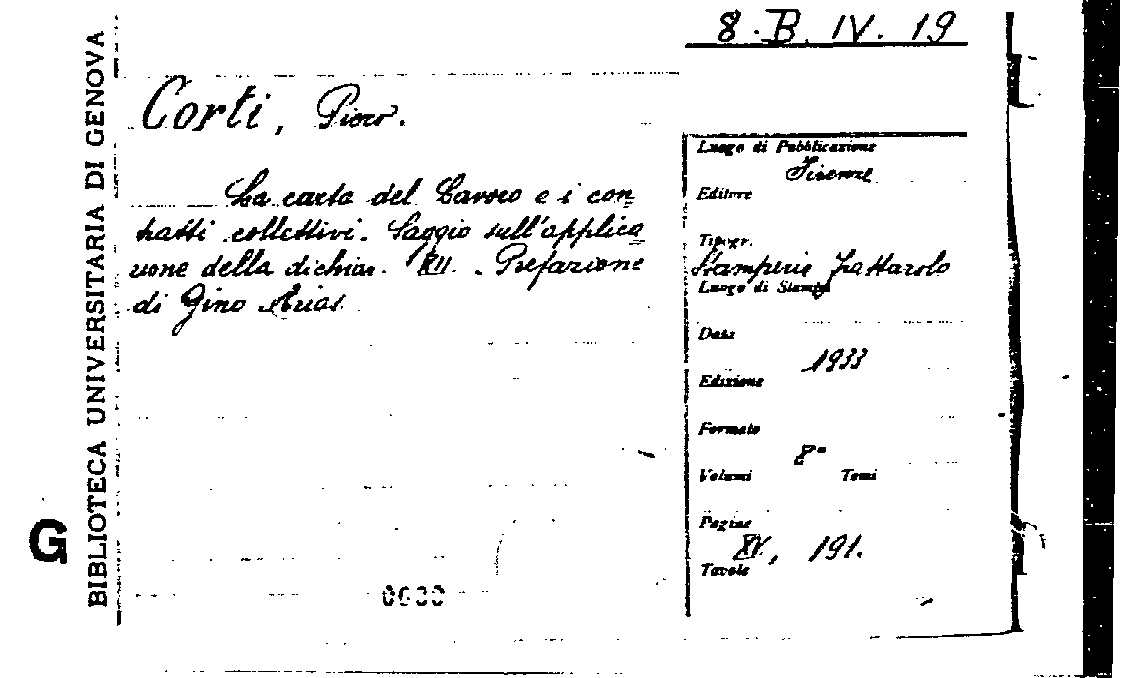 8. B. IV. 19
Corti, Piero.
La carta del Lavoro e i con=
tratti collettivi. Saggio sull'applica=
zione della dichiar. XII. - Prefazione
di Gino Arias
Luogo di Pubblicazione
Firenze
Editore
Tipogr.
Stamperie Frattarolo
Luogo di Stampa
Data
1933
Edizione
Formato
8°
Volumi Tomi
Pagine
XV, 191.
Tavole
BIBLIOTECA UNIVERSITARIA DI GENOVA
G